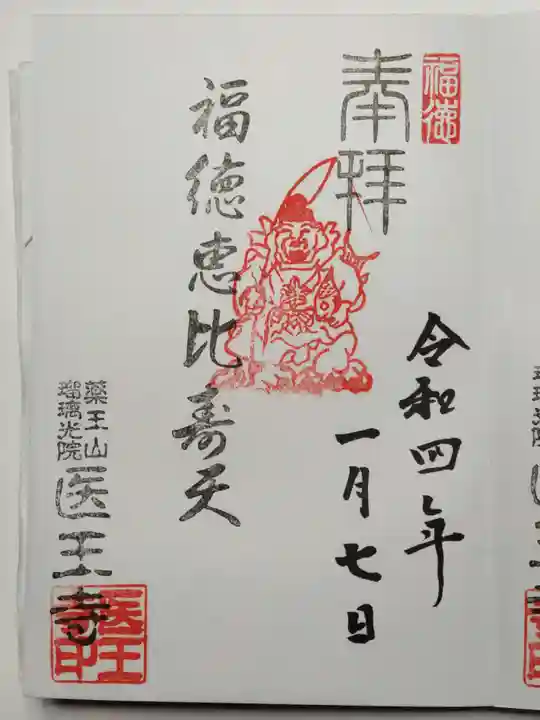 福徳
奉拝
令和四年
一月七日
福徳恵比寿天
薬王山
瑠璃光院
医王寺
医王
寺印